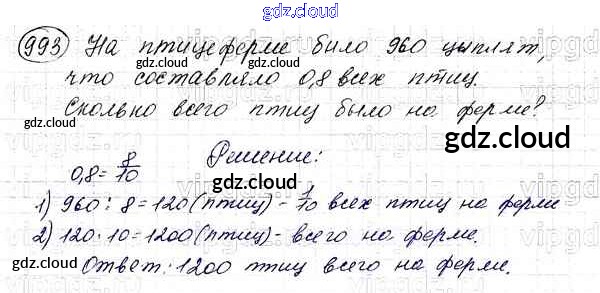 gdz.cloud
993 На птицеферме было 960 цыплят,
что составляло 0,8 всех птиц.
Сколько всего птиц было на ферме?
Решение:
0,8 = 8/10
1) 960 : 8 = 120 (птиц) - 1/10 всех птиц на ферме
2) 120 · 10 = 1200 (птиц) - всего на ферме.
Ответ: 1200 птиц всего на ферме.
gdz.cloud
gdz.cloud
gdz.cloud
gdz.cloud
gdz.cloud
gdz.cloud
gdz.cloud